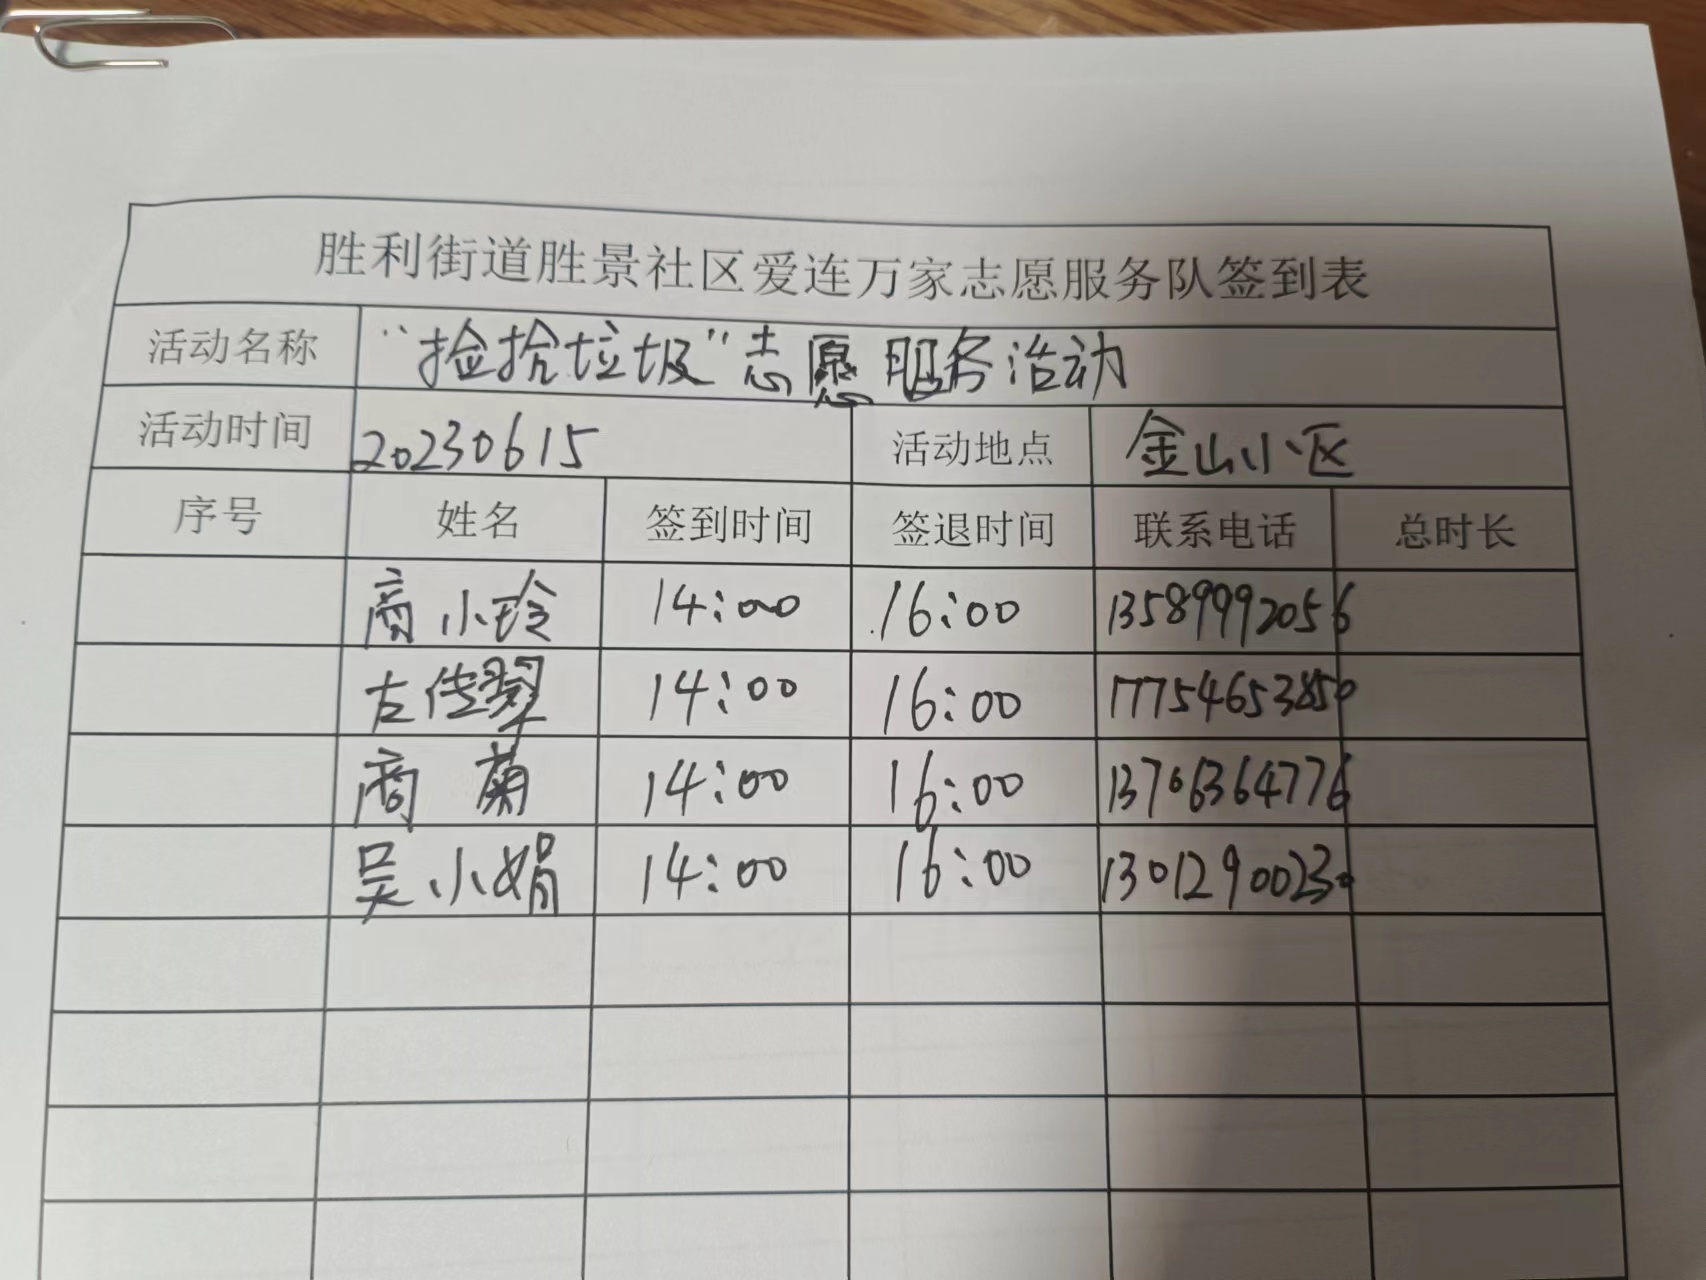 胜利街道胜景社区爱连万家志愿服务队签到表
活动名称 “捡拾垃圾”志愿服务活动
活动时间 20230615 活动地点 金山小区
序号 姓名 签到时间 签退时间 联系电话 总时长
商小玲 14:00 16:00 13589992056
古传翠 14:00 16:00 17754653850
商菊 14:00 16:00 13706364776
吴小娟 14:00 16:00 13012900230